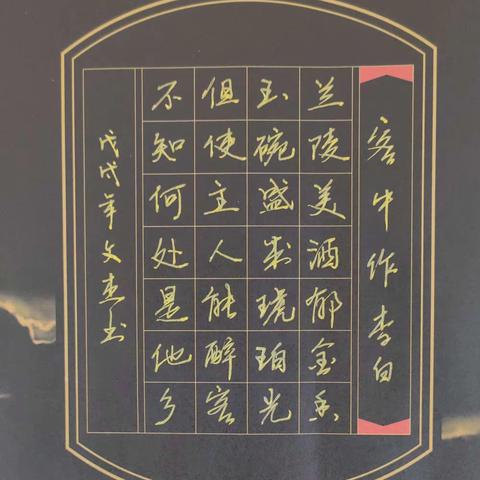 客中作李白
兰陵美酒郁金香
玉碗盛来琥珀光
但使主人能醉客
不知何处是他乡
戊戌年文杰书